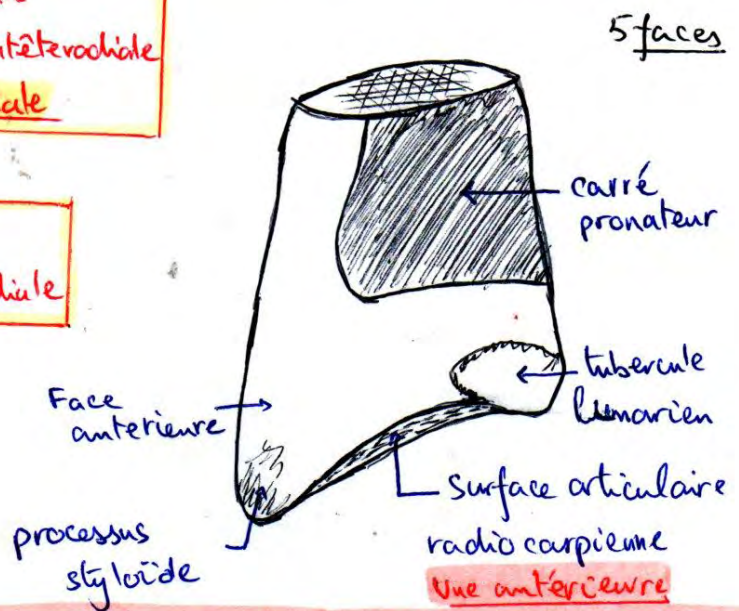 5 faces
carré
pronateur
tubercule
lunarien
Face
anterieure
surface articulaire
radio carpienne
processus
styloïde
vue antérieure